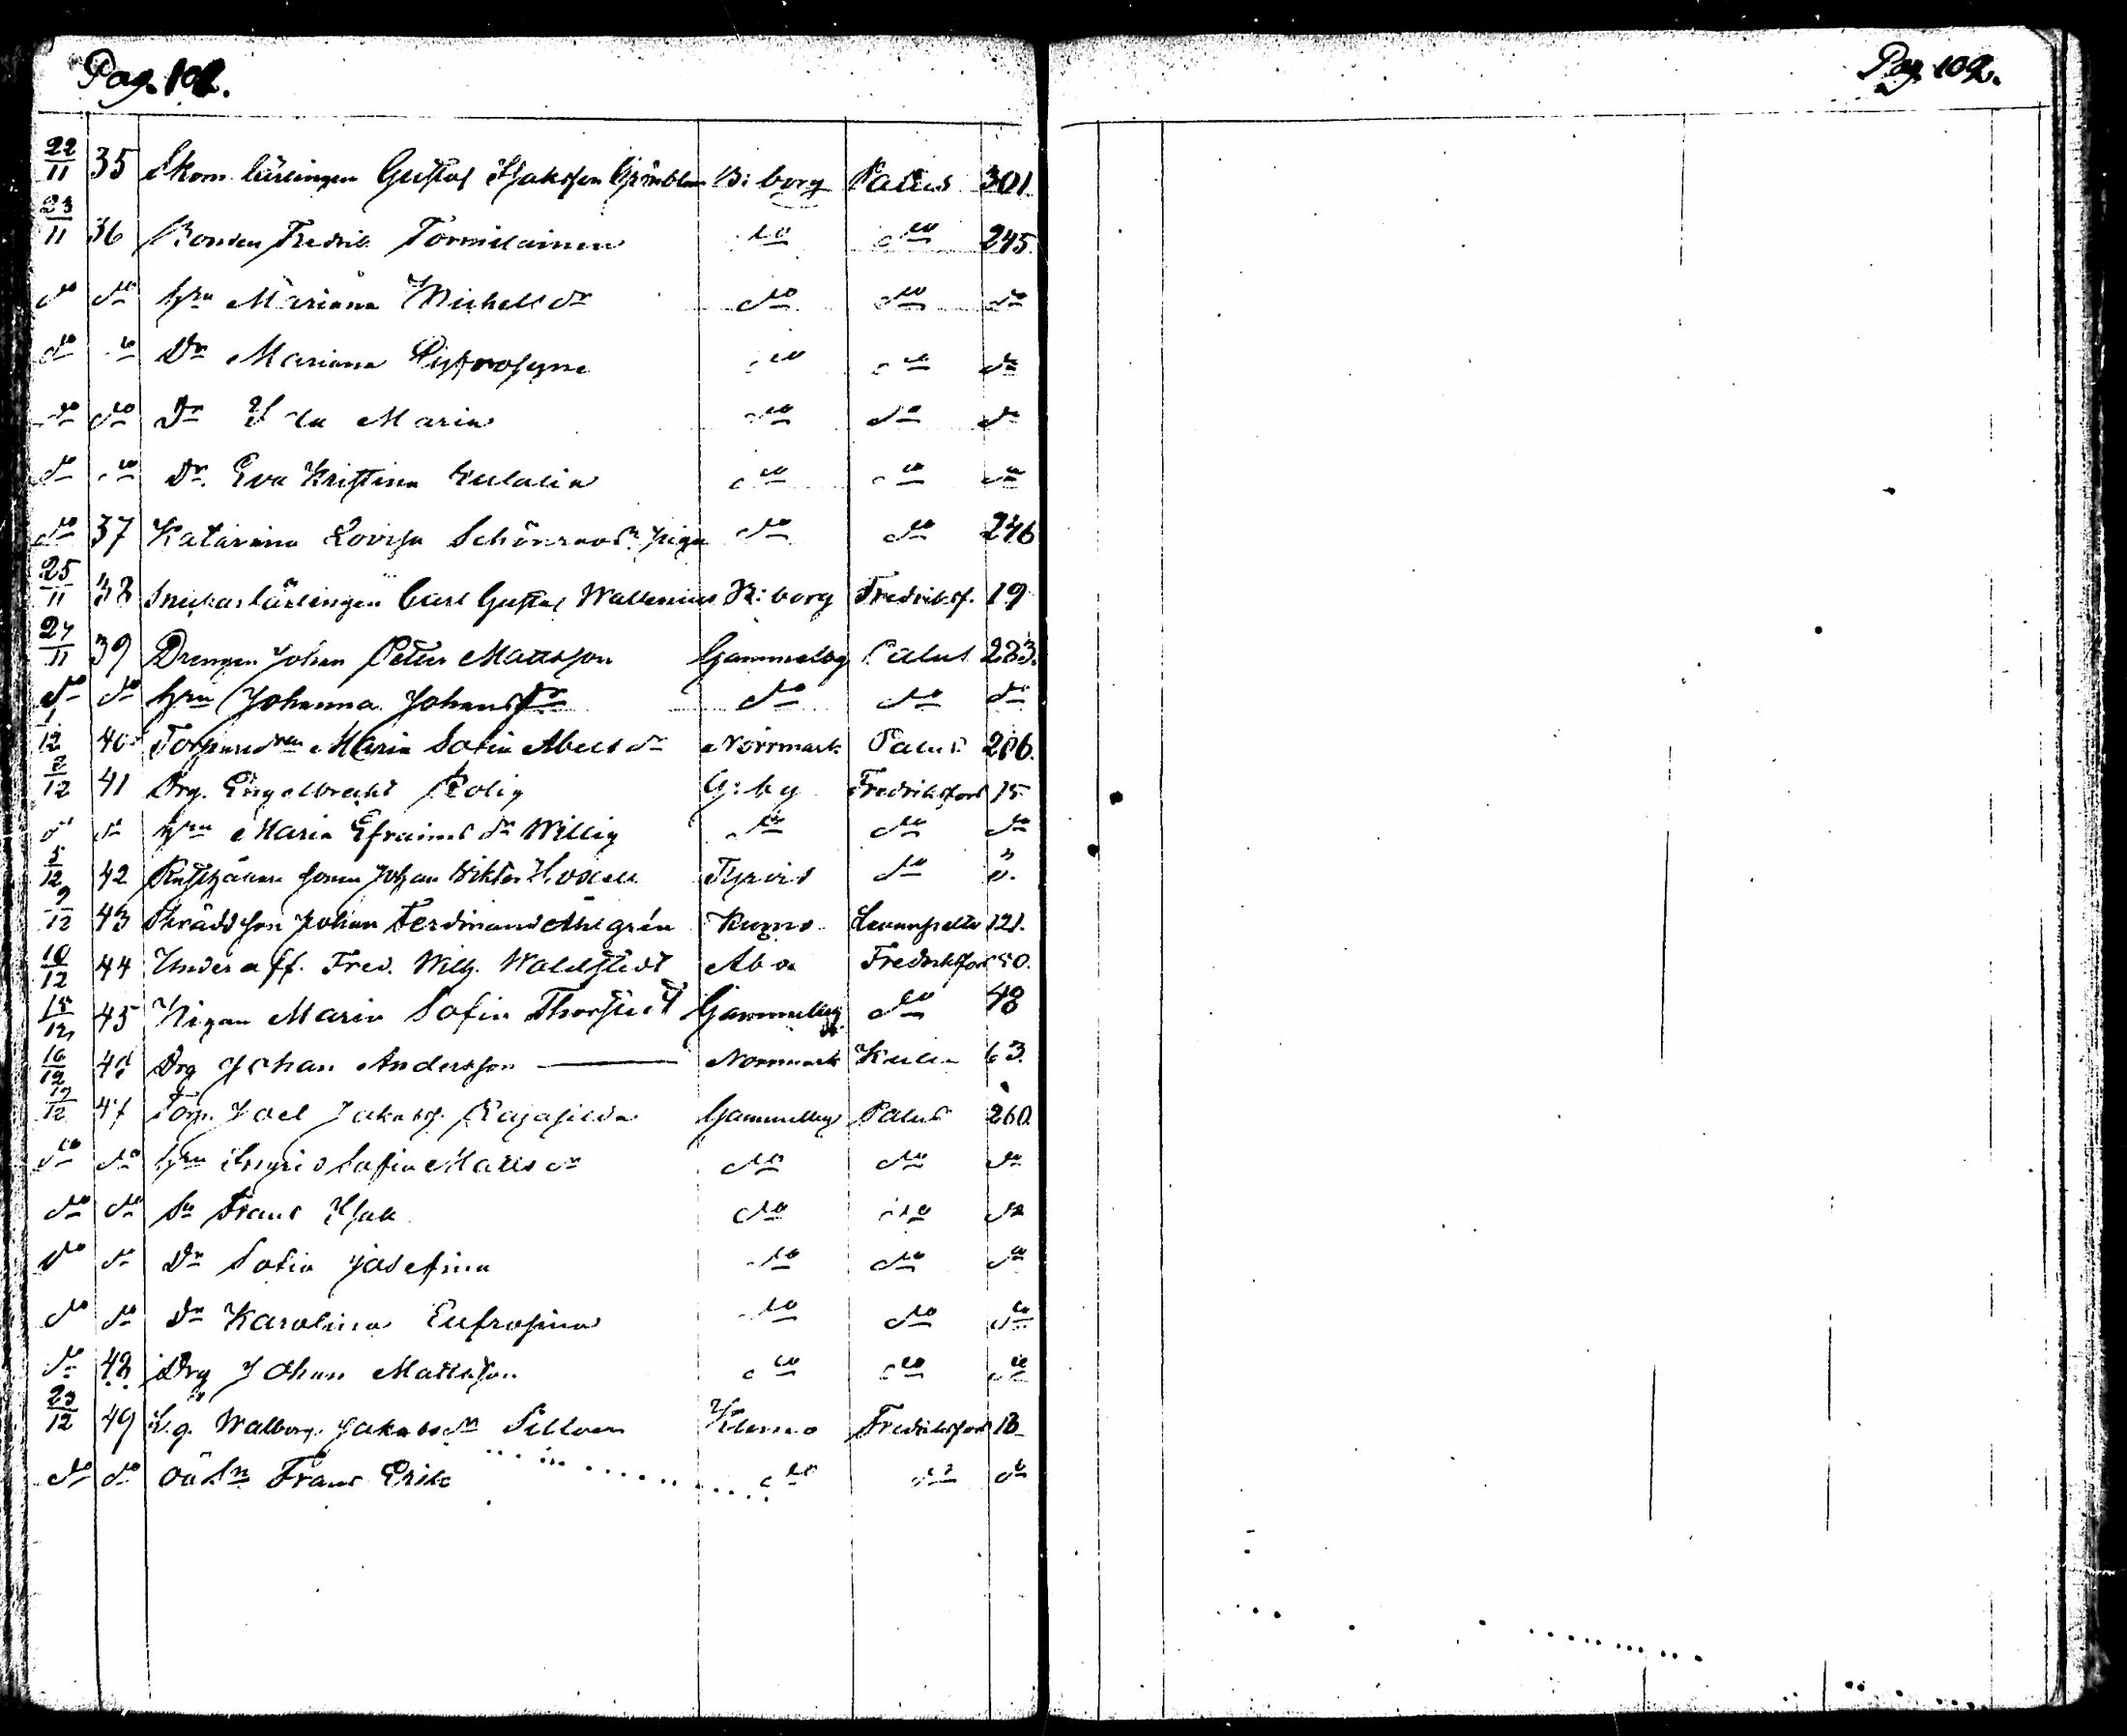 Pag. 102.
Pag. 102.
22/11 35 Skom. lärlingen Gustaf Isaksson Grönblom B:borg Palus 301.
23/11 36 Bonden Fredrik Tormilainen do do 245.
do do Hru Mariana Michelsdr do do do
do do Dr Mariana do do do
do do Dr Ida Maria do do do
do do Dr. Eva Kristina Eulalia do do do
do 37 Katarina Lovisa piga do do 246
25/11 38 Snickarlärlingen Carl Gustaf Wallenius B:borg Fredriksf. 19
27/11 39 Drengen Johan Petter Mattsson Gammelby Palus 283.
do do Hru Johanna Johansdr do do do
1/12 40 Maria Sofia Abelsdr Norrmark Palus 286.
2/12 41 Drg. Engelbrekt Rolig G:by Fredriksfors 15
do do Hru Maria Efraimsdr Willig do do do
5/12 42 sonen Johan Wiktor do "
9/12 43 Skrädd son Johan Ferdinand Ahlgrén Kumo 121.
10/12 44 Underoff. Fred. Wilh. Waldstedt Åbo Fredriksfors 50.
15/12 45 Pigan Maria Sofia Thorstedt Gammelby do 48
16/12 46 Drg Johan Andersson Norrmark 63.
19/12 47 Torp. Joel Jakobss. Gammelby Palus 260.
do do Hru Ingrid Sofia Mattsdr do do do
do do Sn Frans Isak do do do
do do Dr Sofia Josefina do do do
do do Dr Karolina Eufrosina do do do
do 48 Drg Johan Mattsson do do do
23/12 49 Walborg Jakobsdr Fredriksfors 13
do do Oä Sn Frans Erik do do do